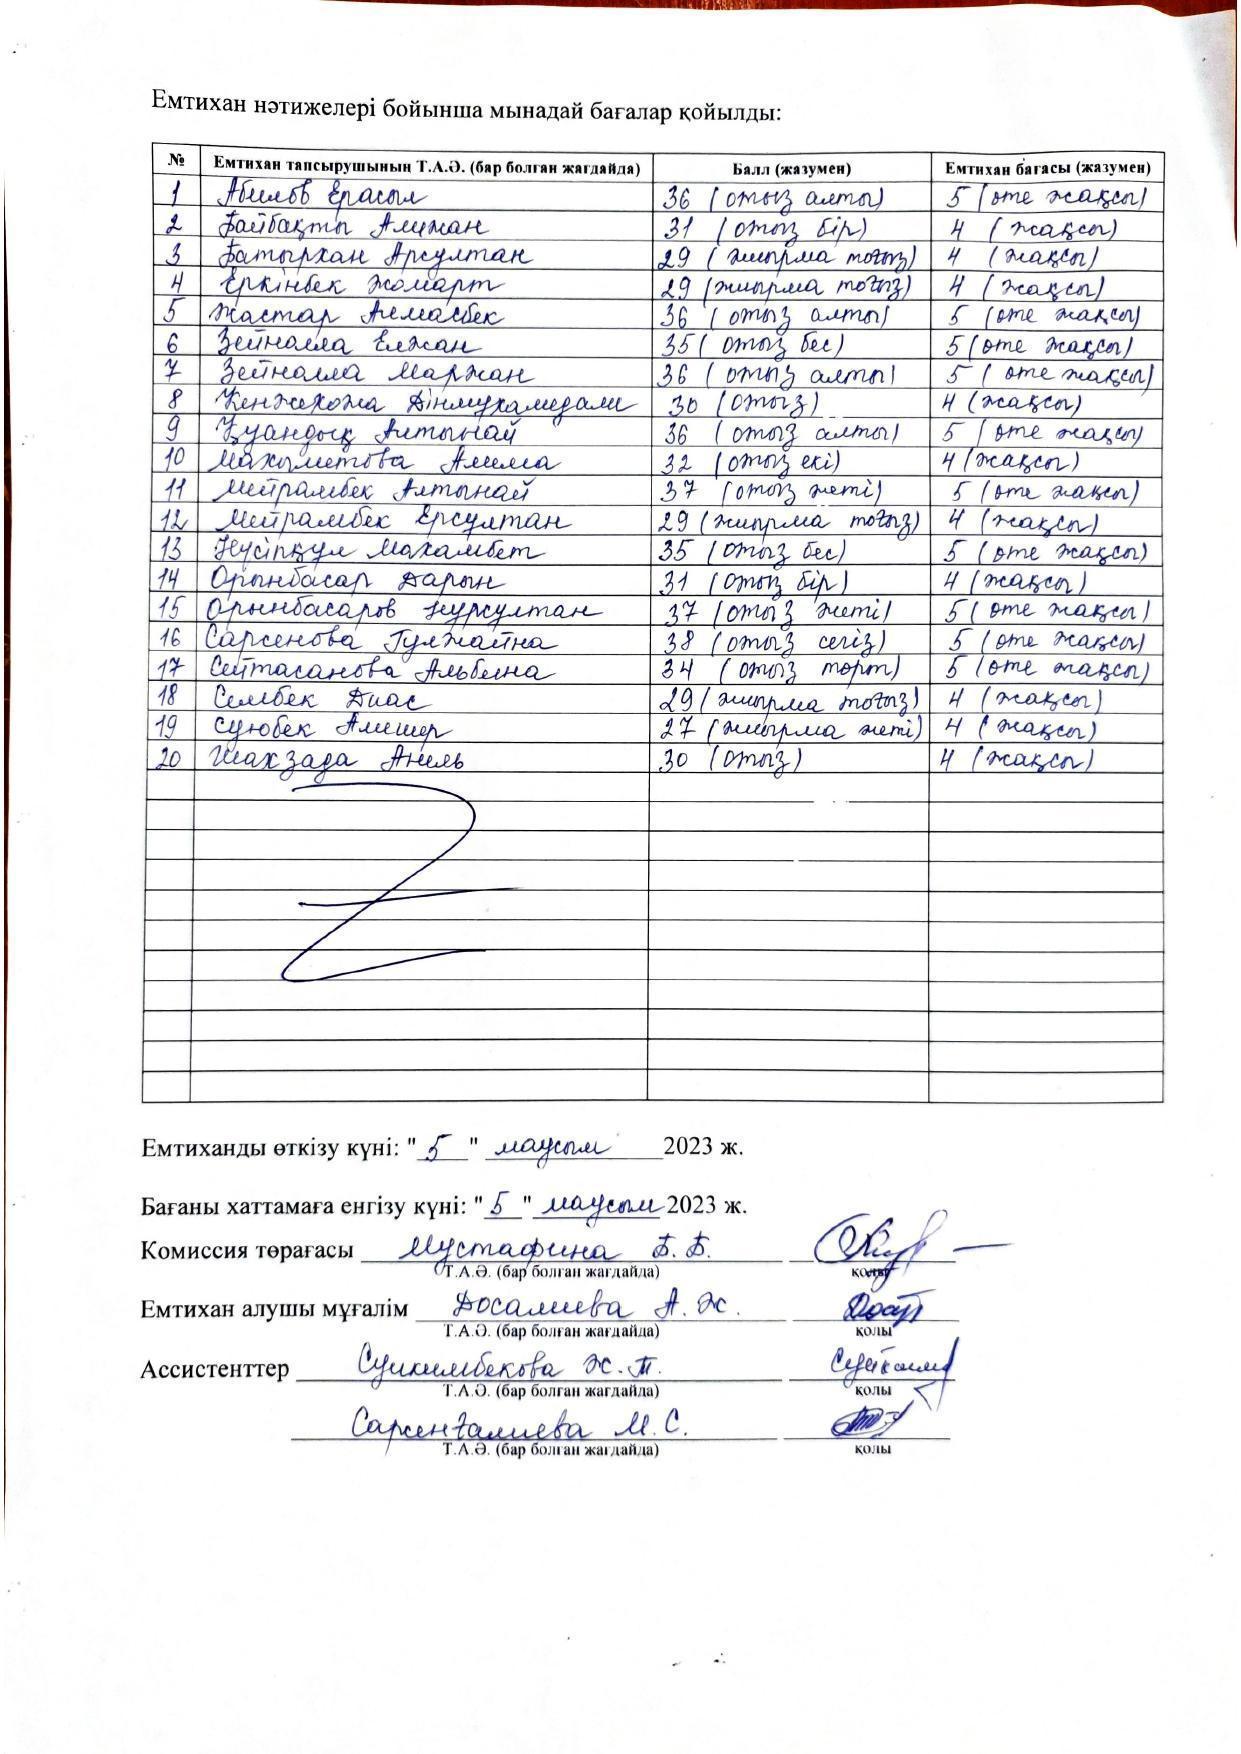 Емтихан нәтижелері бойынша мынадай бағалар қойылды:
№ Емтихан тапсырушының Т.А.Ә. (бар болған жағдайда) Балл (жазумен) Емтихан бағасы (жазумен)
1 Абилов Ерасыл 36 (отыз алты) 5 (өте жақсы)
2 Байбақты Алижан 31 (отыз бір) 4 (жақсы)
3 Батырхан Арсултан 29 (жиырма тоғыз) 4 (жақсы)
4 Еркінбек Жомарт 29 (жиырма тоғыз) 4 (жақсы)
5 Жастар Алмасбек 36 (отыз алты) 5 (өте жақсы)
6 Зейнолла Елжан 35 (отыз бес) 5 (өте жақсы)
7 Зейнолла Маржан 36 (отыз алты) 5 (өте жақсы)
8 Кенжехожа Дінмухамедали 30 (отыз) 4 (жақсы)
9 Қуандық Алтынай 36 (отыз алты) 5 (өте жақсы)
10 Махамбетова Алима 32 (отыз екі) 4 (жақсы)
11 Мейрамбек Алтынай 37 (отыз жеті) 5 (өте жақсы)
12 Мейрамбек Ерсултан 29 (жиырма тоғыз) 4 (жақсы)
13 Нүсіпқұл Махамбет 35 (отыз бес) 5 (өте жақсы)
14 Орынбасар Дарын 31 (отыз бір) 4 (жақсы)
15 Орынбасаров Нурсултан 37 (отыз жеті) 5 (өте жақсы)
16 Сарсенова Гулжайна 38 (отыз сегіз) 5 (өте жақсы)
17 Сейтасанова Альбина 34 (отыз төрт) 5 (өте жақсы)
18 Селбек Диас 29 (жиырма тоғыз) 4 (жақсы)
19 Суюбек Алишер 27 (жиырма жеті) 4 (жақсы)
20 Шахзада Анель 30 (отыз) 4 (жақсы)
Емтиханды өткізу күні: "5" маусым 2023 ж.
Бағаны хаттамаға енгізу күні: "5" маусым 2023 ж.
Комиссия төрағасы Мустафина Б. Б.
Т.А.Ә. (бар болған жағдайда) қолы
Емтихан алушы мұғалім Досалиева А. Ж.
Т.А.Ә. (бар болған жағдайда) қолы
Ассистенттер Ж. Т.
Т.А.Ә. (бар болған жағдайда) қолы
Сарсенғалиева М. С.
Т.А.Ә. (бар болған жағдайда) қолы